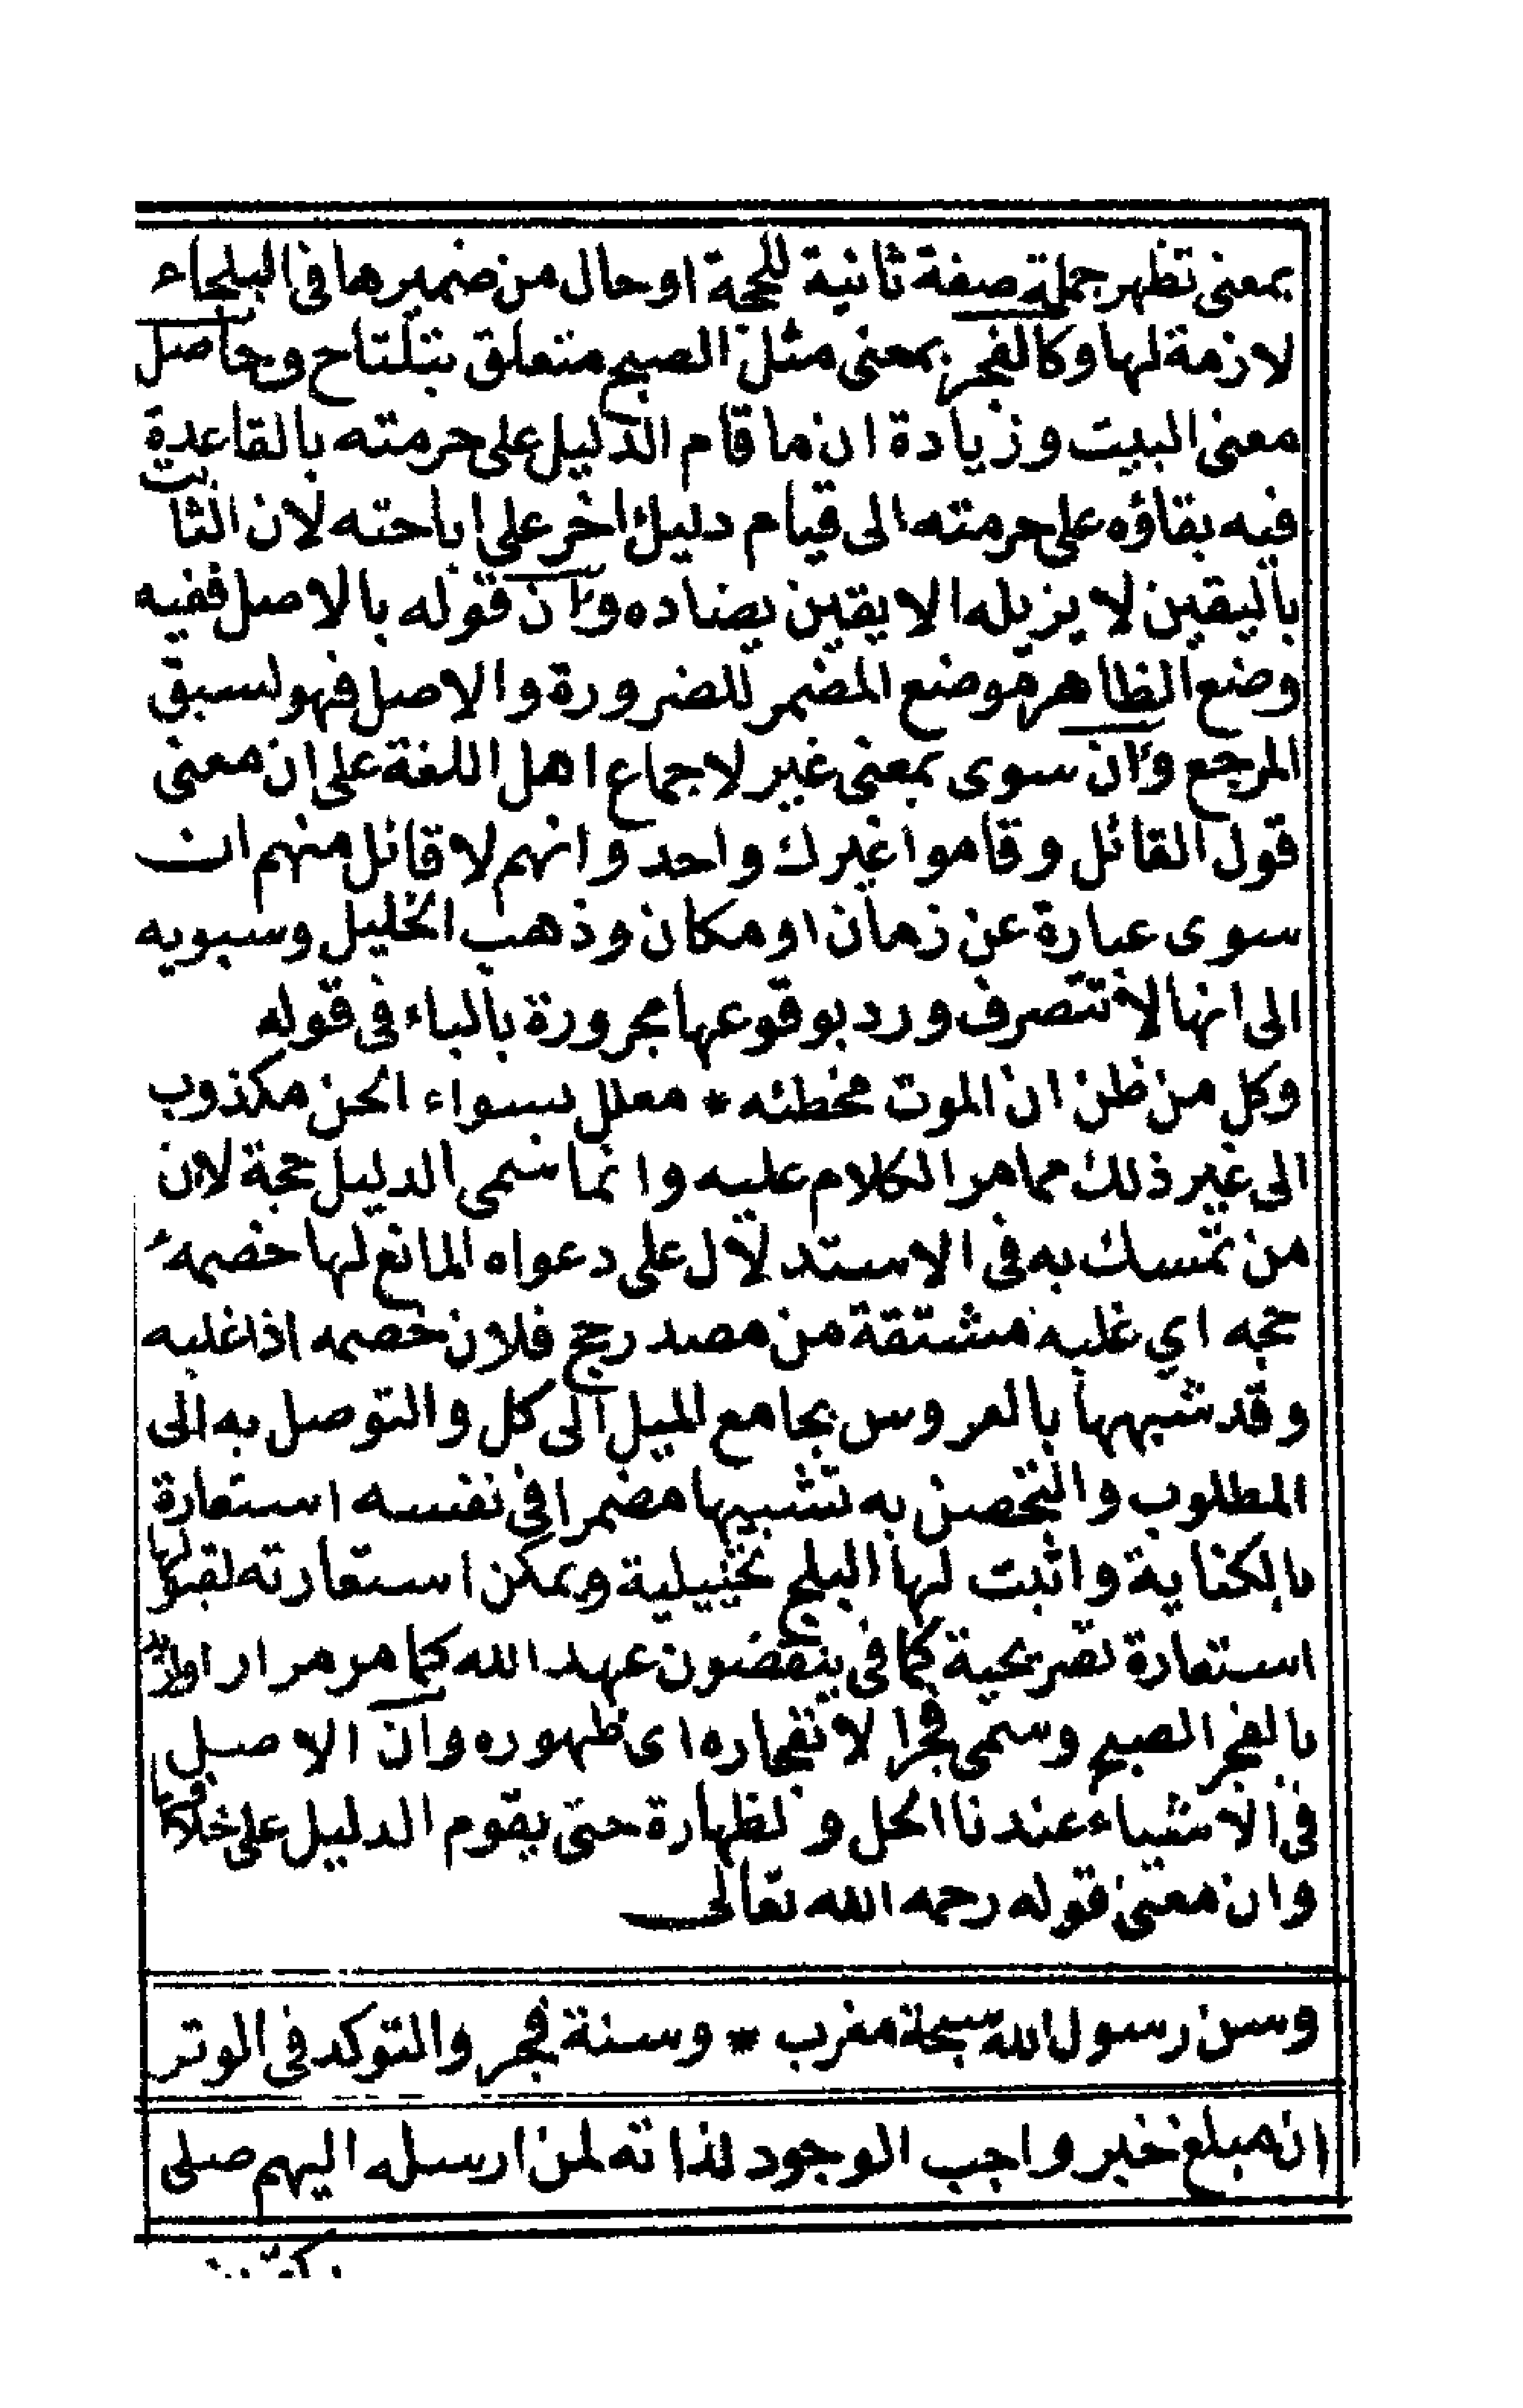 بمعنى تظهر جملة صفة ثانية للحجة او حال من ضميرها فى البلجاء
لازمة لها وكالفجر بمعنى مثل الصبح متعلق بتلتاح وحاصل
معنى البيت وزيادة ان ما قام الدليل على حرمته بالقاعدة
فيه بقاؤه على حرمته الى قيام دليل اخر على اباحته لان الثابت
باليقين لا يزيله الا يقين يضاده وان قوله بالاصل ففيه
وضع الظاهر موضع المضمر للضرورة والاصل فهو لسبق
المرجع وان سوى بمعنى غير لاجماع اهل اللغة على ان معنى
قول القائل وقاموا غيرك واحد وانهم لا قائل منهم ان
سوى عبارة عن زمان او مكان وذهب الخليل وسبويه
الى انها لا تتصرف ورد بوقوعها مجرورة بالباء فى قوله
وكل من ظن ان الموت مخطئه * معلل بسواء الحن مكذوب
الى غير ذلك مما مر الكلام عليه وانما سمى الدليل حجة لان
من تمسك به فى الاستدلال على دعواه المانع لها خصمه
حجه اي غلبه مشتقة من مصدر حج فلان خصمه اذا غلبه
وقد شبهها بالعروس بجامع الميل الى كل والتوصل به الى
المطلوب والتحصن به تشبيها مضمرا فى نفسه استعارة
بالكناية واثبت لها البلج تخييلية ويمكن استعارته لقبولها
استعارة تصريحية كما فى ينقضون عهد الله كما مر مرارا واريد
بالفجر الصبح وسمى فجرا لانفجاره اى ظهوره وان الاصل
فى الاشياء عندنا الحل ولطهارة حتى يقوم الدليل على خلافها
وان معنى قوله رحمه الله تعالى
وسن رسول الله سبحة مغرب * وسنة فجر والتوكد فى الوتر
ان مبلغ خبر واجب الوجود لذاته لمن ارسله اليهم صلى